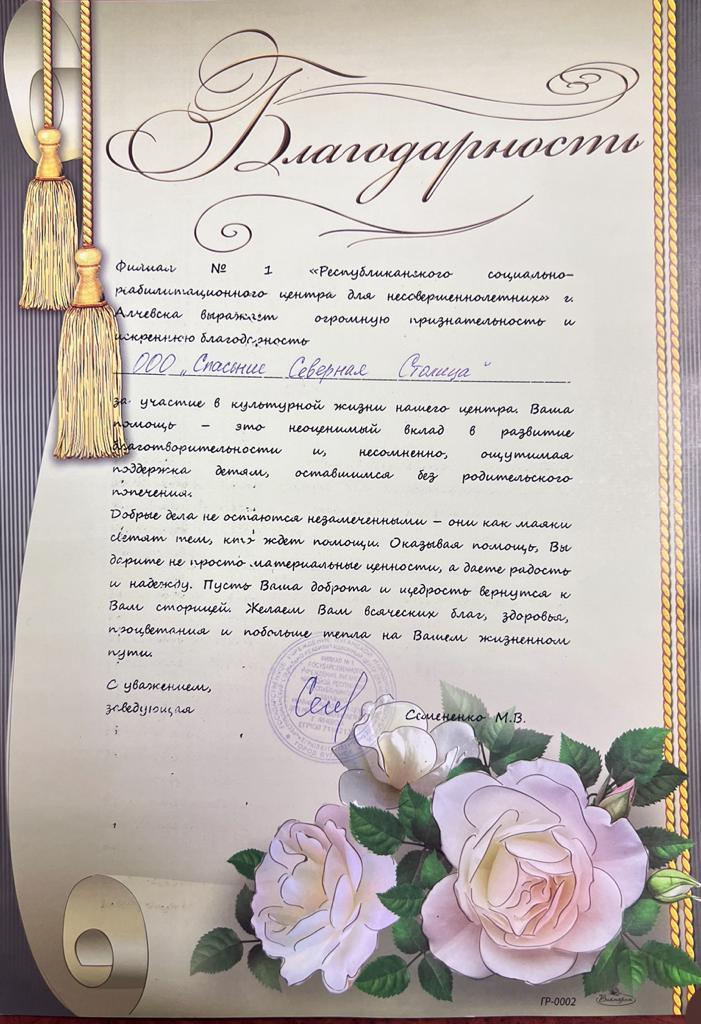 Благодарность
Филиал № 1 «Республиканского социально-
реабилитационного центра для несовершеннолетних» г.
Алчевска выражает огромную признательность и
искреннюю благодарность
ООО „Спасение Северная Столица"
за участие в культурной жизни нашего центра. Ваша
помощь – это неоценимый вклад в развитие
благотворительности и, несомненно, ощутимая
поддержка детям, оставшимся без родительского
попечения.
Добрые дела не остаются незамеченными – они как маяки
светят тем, кто ждет помощи. Оказывая помощь, Вы
дарите не просто материальные ценности, а даете радость
и надежду. Пусть Ваша доброта и щедрость вернутся к
Вам сторицей. Желаем Вам всяческих благ, здоровья,
процветания и побольше тепла на Вашем жизненном
пути.
С уважением,
заведующая
Семененко М.В.
ФИЛИАЛ № 1
ГР-0002